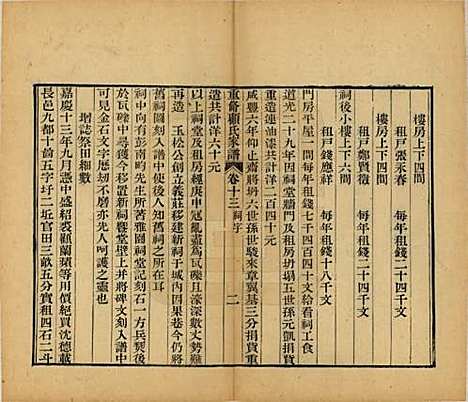 樓房上下四間
租戶張永春　每年租錢二十四千文
樓房上下四間
租戶鄭賢徵　每年租錢二十四千文
祠後小樓上下六間
租戶錢應祥　每年租錢十八千文
門房平屋一間每年租錢七千四百四十文給看祠工食
道光二十九年因祠堂牆門及租房坍塌五世孫元凱捐資
重造連油漆共計洋二百四十元
咸豐六年仰止齋將坍六世孫世駿來章翼基三分捐資重
重脩顧氏家譜　卷十三祠宇　二
造共計洋六十元
以上祠堂及租房經庚申冦亂盡爲瓦礫且濠深數丈萬難
再造　玉松公創立義莊移建新祠于城内因果巷今於
舊祠之圖刻入譜中俾後人知舊祠之所在耳
舊祠中向有彭南畇先生所著雅園祠堂記刻石一方兵燹後
於瓦礫中尋獲今移置新祠饗堂壁上并將碑文刻入譜中
可見金石文字歷刼不磨亦先人呵護之靈也
增誌祭田糧數
嘉慶十三年九月憑中盛紹裘顧蘭蘋等用價絶買沈德載
長邑九都十啚五字圩二坵官田三畝五分實租四石二斗